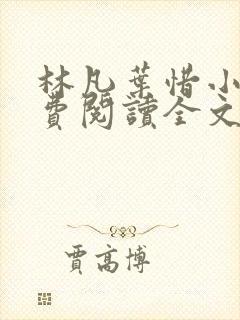 林凡葉惜小
費閱讀全文
賈高博